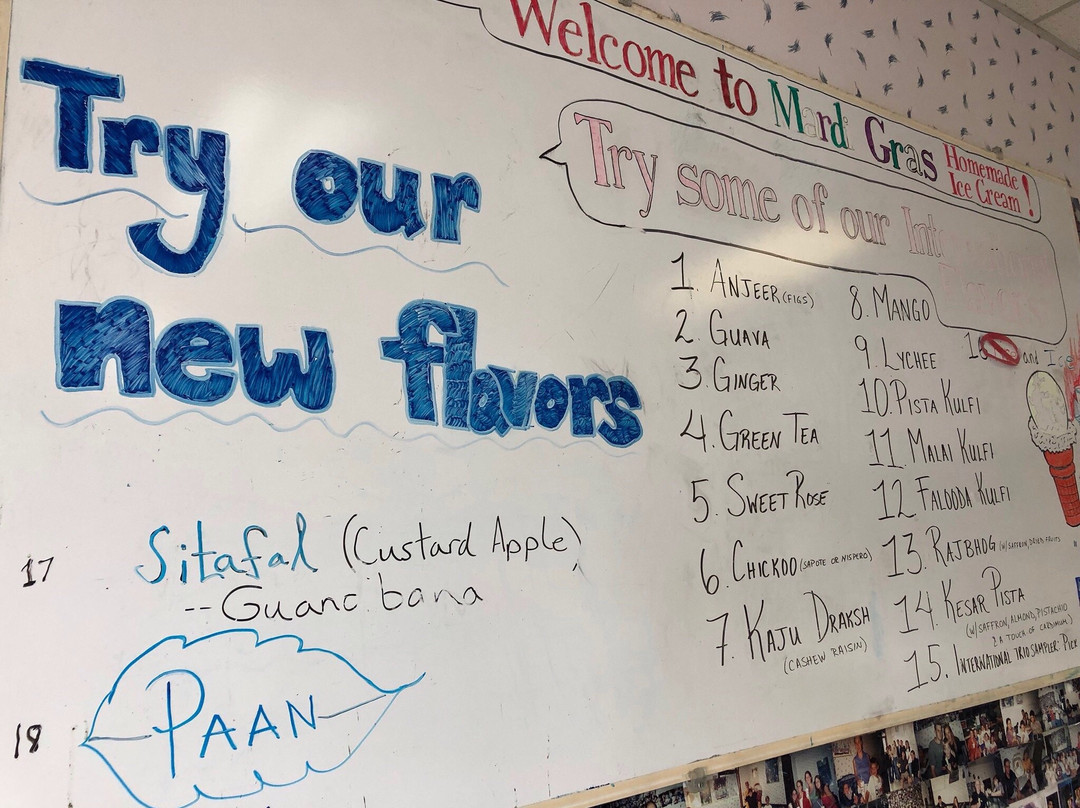 Welcome to Mardi Gras Homemade
Ice Cream!
Try some of our
Try our
new flavors
17 Sitafal (Custard Apple)
-- Guanabana
18 PAAN
1. ANJEER (FIGS)
2. GUAVA
3. GINGER
4. GREEN TEA
5. SWEET ROSE
6. CHICKOO (SAPOTE OR NISPERO)
7. KAJU DRAKSH
(CASHEW RAISIN)
8. MANGO
9. LYCHEE
10. PISTA KULFI
11. MALAI KULFI
12. FALOODA KULFI
13. RAJBHOG (W/SAFFRON, DRIED FRUITS
14. KESAR PISTA
(W/SAFFRON, ALMOND, PISTACHIO
& A TOUCH OF CARDIMUM)
15. INTERNATIONAL TRIO SAMPLER: PICK
and Ice